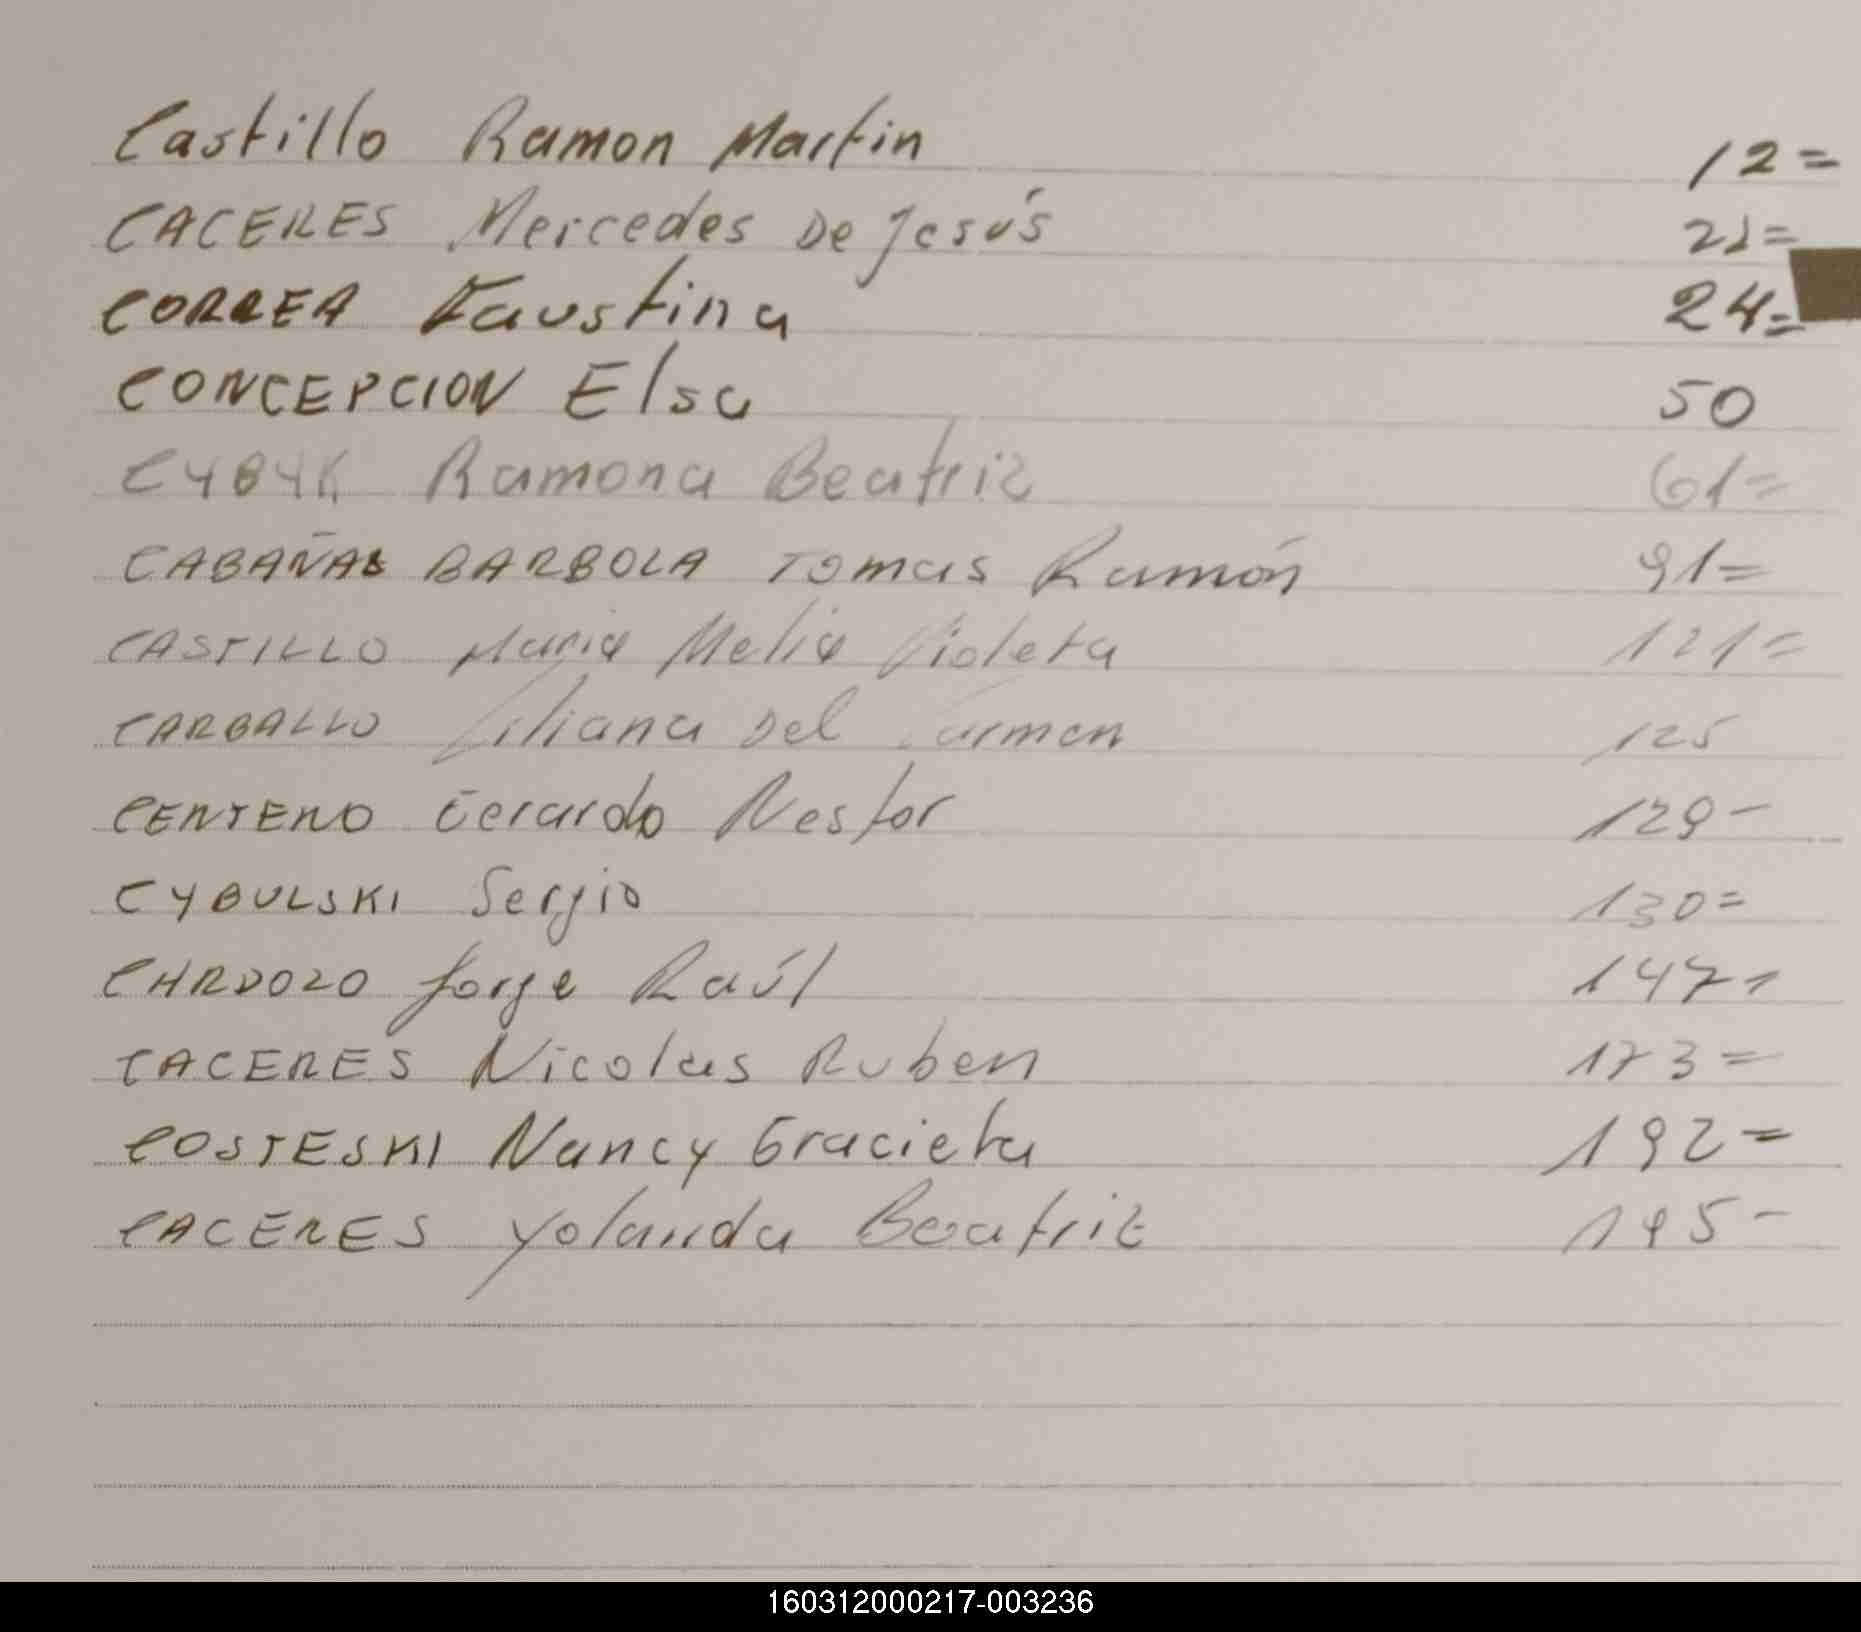 Castillo Ramon Martin 12=
CACERES Mercedes De Jesús 21=
CORREA Faustina 24=
CONCEPCION Elsa 50
CYBYK Ramona Beatriz 61=
CABAÑAS BARBOLA Tomas Ramón 91=
CASTILLO Maria Melia Violeta 121=
CARBALLO Liliana Del Carmen 125
CENTENO Gerardo Nestor 129-
CYBULSKI Sergio 130=
CARDOZO Jorge Raúl 147-
CACERES Nicolas Ruben 173=
COSTESKI Nancy Graciela 192=
CACERES Yolanda Beatriz 195-
160312000217-003236